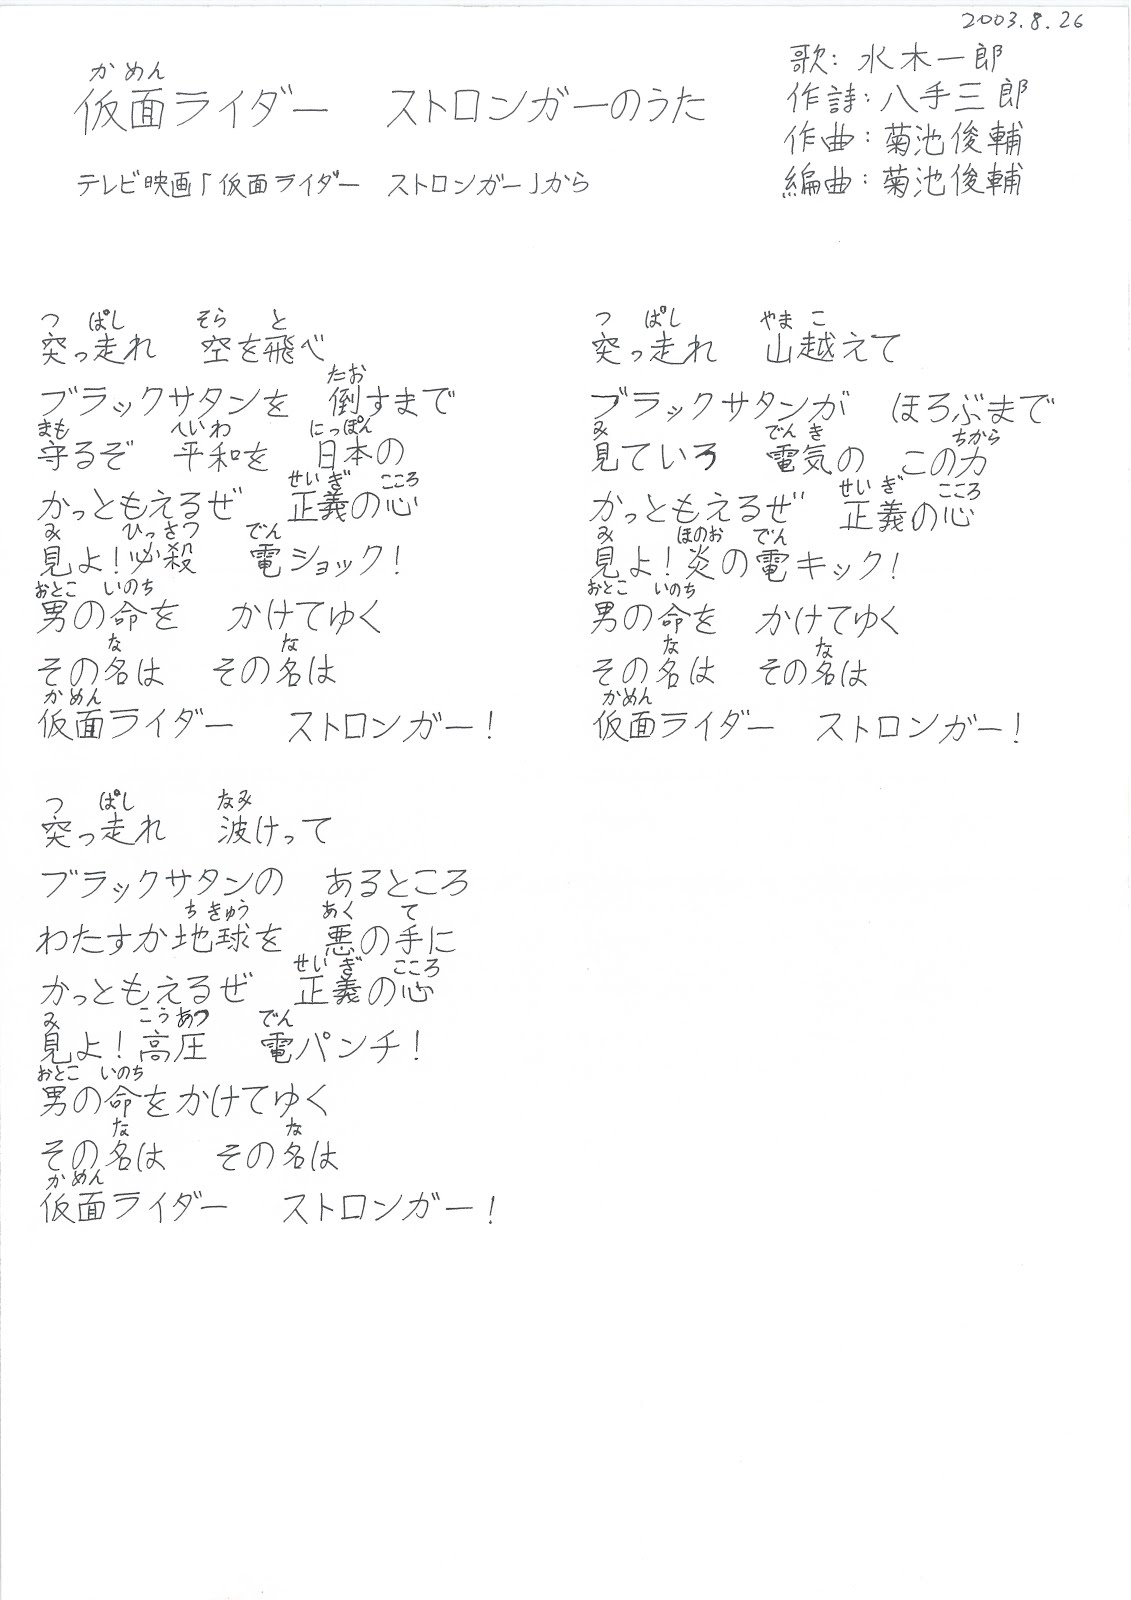 2003.8.26
かめん
仮面ライダー　ストロンガーのうた
テレビ映画「仮面ライダー　ストロンガー」から
歌：水木一郎
作詩：八手三郎
作曲：菊池俊輔
編曲：菊池俊輔
つ　ぱし　そら　と
突っ走れ　空を飛べ
たお
ブラックサタンを　倒すまで
まも　へいわ　にっぽん
守るぞ　平和を　日本の
せいぎ　こころ
かっともえるぜ　正義の心
み　ひっさつ　でん
見よ！必殺　電ショック！
おとこ　いのち
男の命を　かけてゆく
な　な
その名は　その名は
かめん
仮面ライダー　ストロンガー！
つ　ぱし　やま　こ
突っ走れ　山越えて
ブラックサタンが　ほろぶまで
み　でんき　ちから
見ていろ　電気の　この力
せいぎ　こころ
かっともえるぜ　正義の心
み　ほのお　でん
見よ！炎の電キック！
おとこ　いのち
男の命を　かけてゆく
な　な
その名は　その名は
かめん
仮面ライダー　ストロンガー！
つ　ぱし　なみ
突っ走れ　波けって
ブラックサタンの　あるところ
ちきゅう　あく　て
わたすか地球を　悪の手に
せいぎ　こころ
かっともえるぜ　正義の心
み　こうあつ　でん
見よ！高圧　電パンチ！
おとこ　いのち
男の命をかけてゆく
な　な
その名は　その名は
かめん
仮面ライダー　ストロンガー！